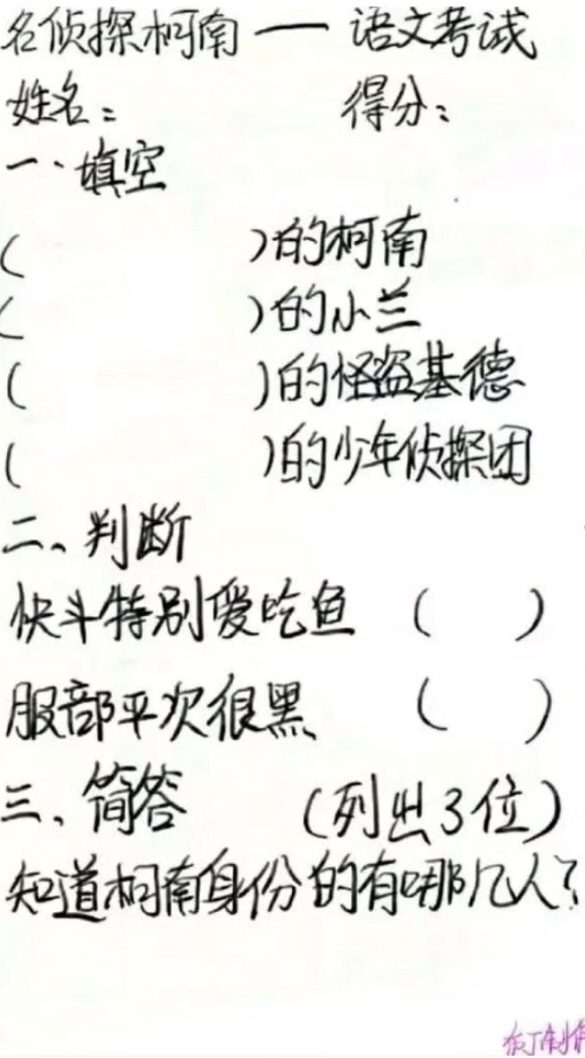 名侦探柯南 —— 语文考试
姓名： 得分：
一、填空
( )的柯南
( )的小兰
( )的怪盗基德
( )的少年侦探团
二、判断
快斗特别爱吃鱼 ( )
服部平次很黑 ( )
三、简答 (列出3位)
知道柯南身份的有哪几人？